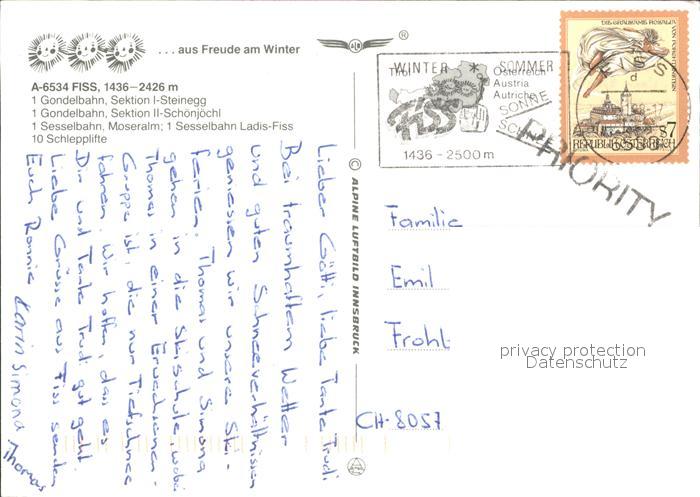 ... aus Freude am Winter
A-6534 FISS, 1436–2426 m
1 Gondelbahn, Sektion I-Steinegg
1 Gondelbahn, Sektion II-Schönjöchl
1 Sesselbahn, Moseralm; 1 Sesselbahn Ladis-Fiss
10 Schlepplifte
Lieber Götti, liebe Tante Trudi
Bei traumhaftem Wetter
und guten Schneeverhältnissen
geniessen wir unsere Ski-
ferien. Thomas und Simona
gehen in die Skischule, wobei
Thomas in einer Erwachsenen-
Gruppe ist, die nur Tiefschnee
fahren. Wir hoffen, dass es
Dir und Tante Trudi gut geht.
Liebe Grüsse aus Fiss senden
Euch Ronnie Karin Simona Thomas
© ALPINE LUFTBILD INNSBRUCK
®
WINTER SOMMER
Tirol
Österreich
Austria
Autriche
FISS
SONNE
1436 - 2500 m
DIE GRAUSAME ROSALIA
VON FORCHTENSTEIN
S7
REPUBLIK ÖSTERREICH
PRIORITY
Familie
Emil
Frohli
CH-8057
privacy protection
Datenschutz